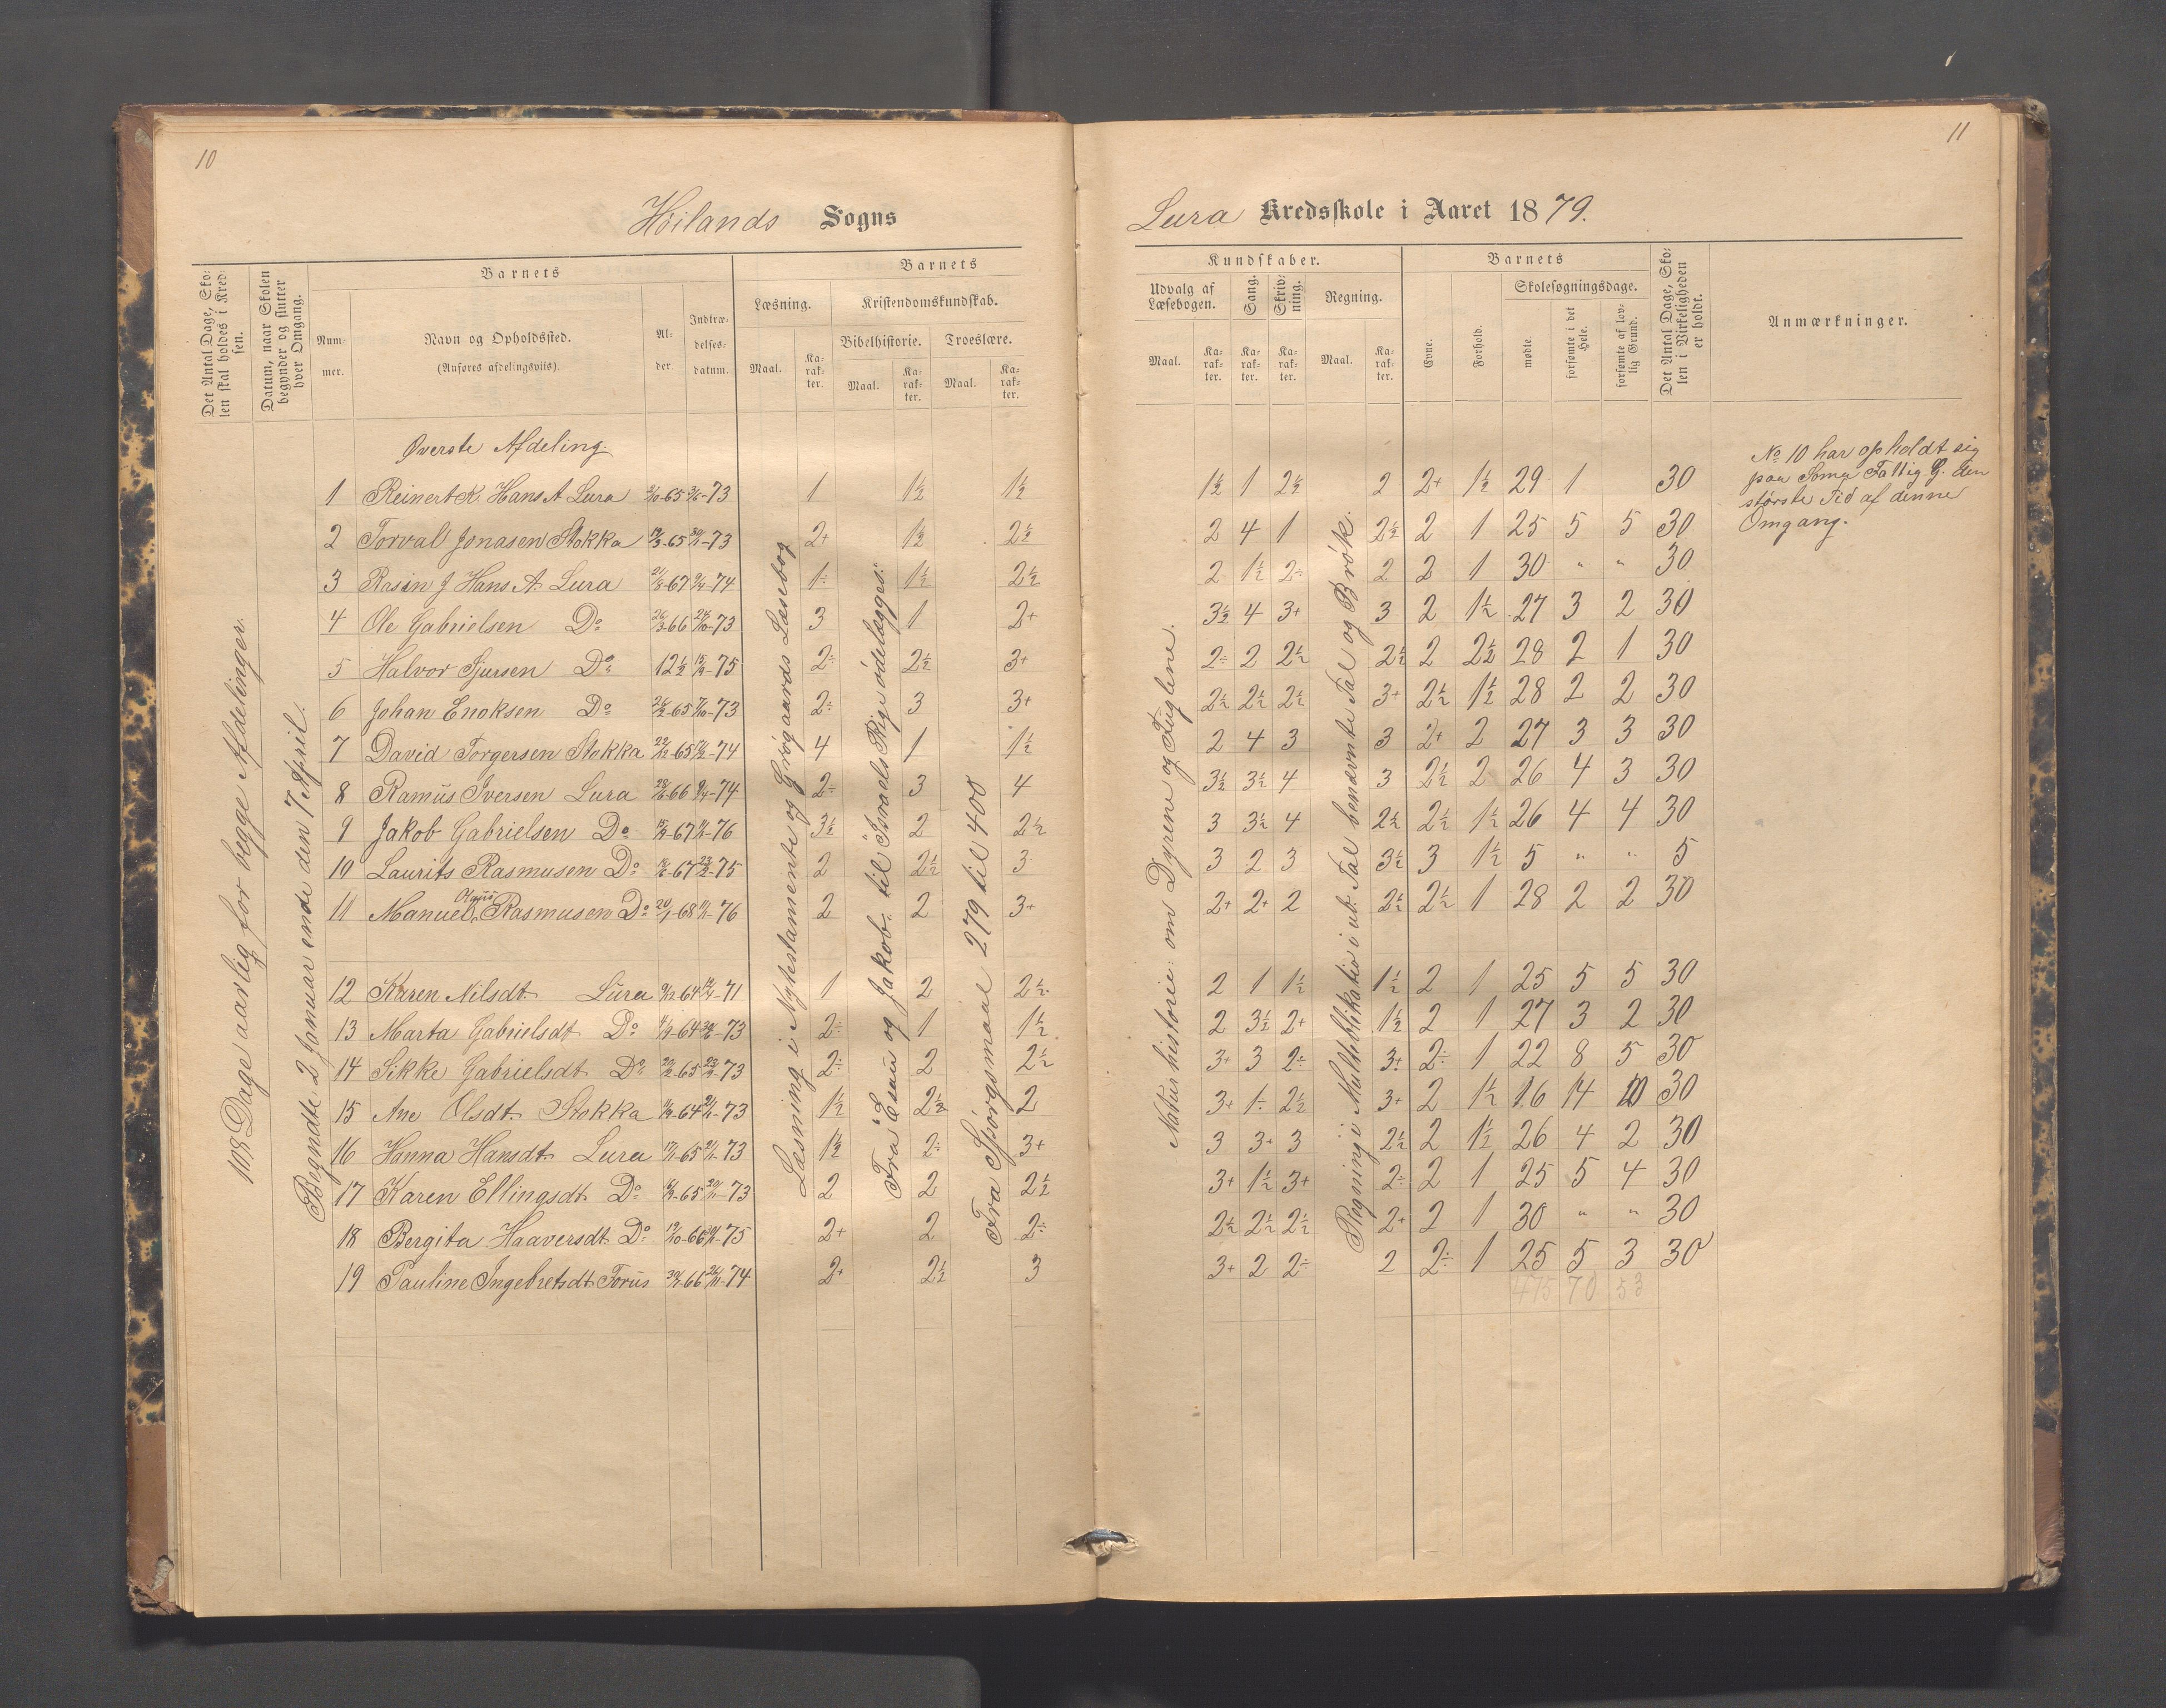 10
Høilands Sogns
Det Antal Dage, Skolen skal holdes i Kredsen.
Datum, naar Skolen begynder og slutter hver Omgang.
Barnets
Nummer.
Navn og Opholdssted.
(Anføres afdelingsviis).
Alder.
Indtrædelsesdatum.
Barnets
Læsning.
Kristendomskundskab.
Bibelhistorie. Troeslære.
Maal. Karakter. Maal. Karakter. Maal. Karakter.
108 Dage aarlig for begge Afdelinger.
Begyndte 2 Januar ende den 7 April.
Læsning i Nytestamente og Grøgaards Læsebog
Fra "Esau og Jakob" til "Israels Rige ødelægges:
Fra Spørgsmaal 279 til 400
Øverste Afdeling.
1 Reinert K. Hans A Lura -65 -73 1 1½ 1½
2 Torval Jonasen Stokka -65 -73 2+ 1½ 2½
3 Rasin J Hans A. Lura -67 -74 1÷ 1½ 2½
4 Ole Gabrielsen Do 26/3-66 -73 3 1 2+
5 Halvor Sjursen Do 12½ -75 2÷ 2½ 3+
6 Johan Enoksen Do -65 -73 2÷ 3 3+
7 David Torgersen Stokka 22/12-65 -74 4 1 1½
8 Ramus Iversen Lura -66 -74 2÷ 3 4
9 Jakob Gabrielsen Do -67 -76 3½ 2 2½
10 Laurits Rasmusen Do -67 -75 2 2½ 3
11 Manuel Rasmusen Do 20/1-68 -76 2 2 3+
12 Karen Nilsdt. Lura -64 -71 1 2 2½
13 Marta Gabrielsdt Do -64 -73 2÷ 1 1½
14 Sikke Gabrielsdt Do -65 -73 2÷ 2 2½
15 Ane Olsdt. Stokka -64 -73 1½ 2½ 2
16 Hanna Hansdt. Lura -65 -73 1½ 2÷ 3+
17 Karen Ellingsdt Do -65 -73 2 2 2½
18 Bergita Haaversdt. Do -66 -75 2+ 2 2÷
19 Pauline Ingebretsdt. Forus -66 -74 2+ 2½ 3
11
Lura Kredsskole i Aaret 1879.
Kundskaber.
Udvalg af Læsebogen.
Sang.
Skrivning.
Regning.
Maal. Karakter. Karakter. Karakter. Maal. Karakter.
Barnets
Evne.
Forhold.
Skolesøgningsdage.
mødte.
forsømte i det Hele.
forsømte af lovlig Grund.
Det Antal Dage, Skolen i Virkeligheden er holdt.
Anmærkninger.
Naturhistorie: om Dyrene og Fuglene.
Regning i Multiblikatio i ub. Tal benævnte Tal og Brøk.
1½ 1 2½ 2 2+ 1½ 29 1 30
2 4 1 2½ 2 1 25 5 5 30
2 1½ 2÷ 2 2 1 30 " " 30
3½ 4 3+ 3 2 1½ 27 3 2 30
2÷ 2 2½ 2½ 2 2½ 28 2 1 30
2½ 2½ 2½ 3+ 2½ 1½ 28 2 2 30
2 4 3 3 2+ 2 27 3 3 30
3½ 3½ 4 3 2½ 2 26 4 3 30
3 3½ 4 2½ 2½ 1½ 26 4 4 30
3 2 3 3½ 3 1½ 5 " " 5
2+ 2+ 2 2½ 2½ 1 28 2 2 30
2 1 1½ 1½ 2 1 25 5 5 30
2 3½ 2+ 1½ 2 1 27 3 2 30
3+ 3 2÷ 3+ 2÷ 1 22 8 5 30
3+ 1÷ 2½ 3+ 2 1½ 16 14 10 30
3 3+ 3 2½ 2 1½ 26 4 2 30
3+ 1½ 3+ 2÷ 2 1 25 5 4 30
2½ 2½ 2½ 2+ 2 1 30 " " 30
3+ 2 2÷ 2 2÷ 1 25 5 3 30
475 70 53
No 10 har opholdt sig
paa Soma Fattig G. den
største Tid af denne
Omgang.